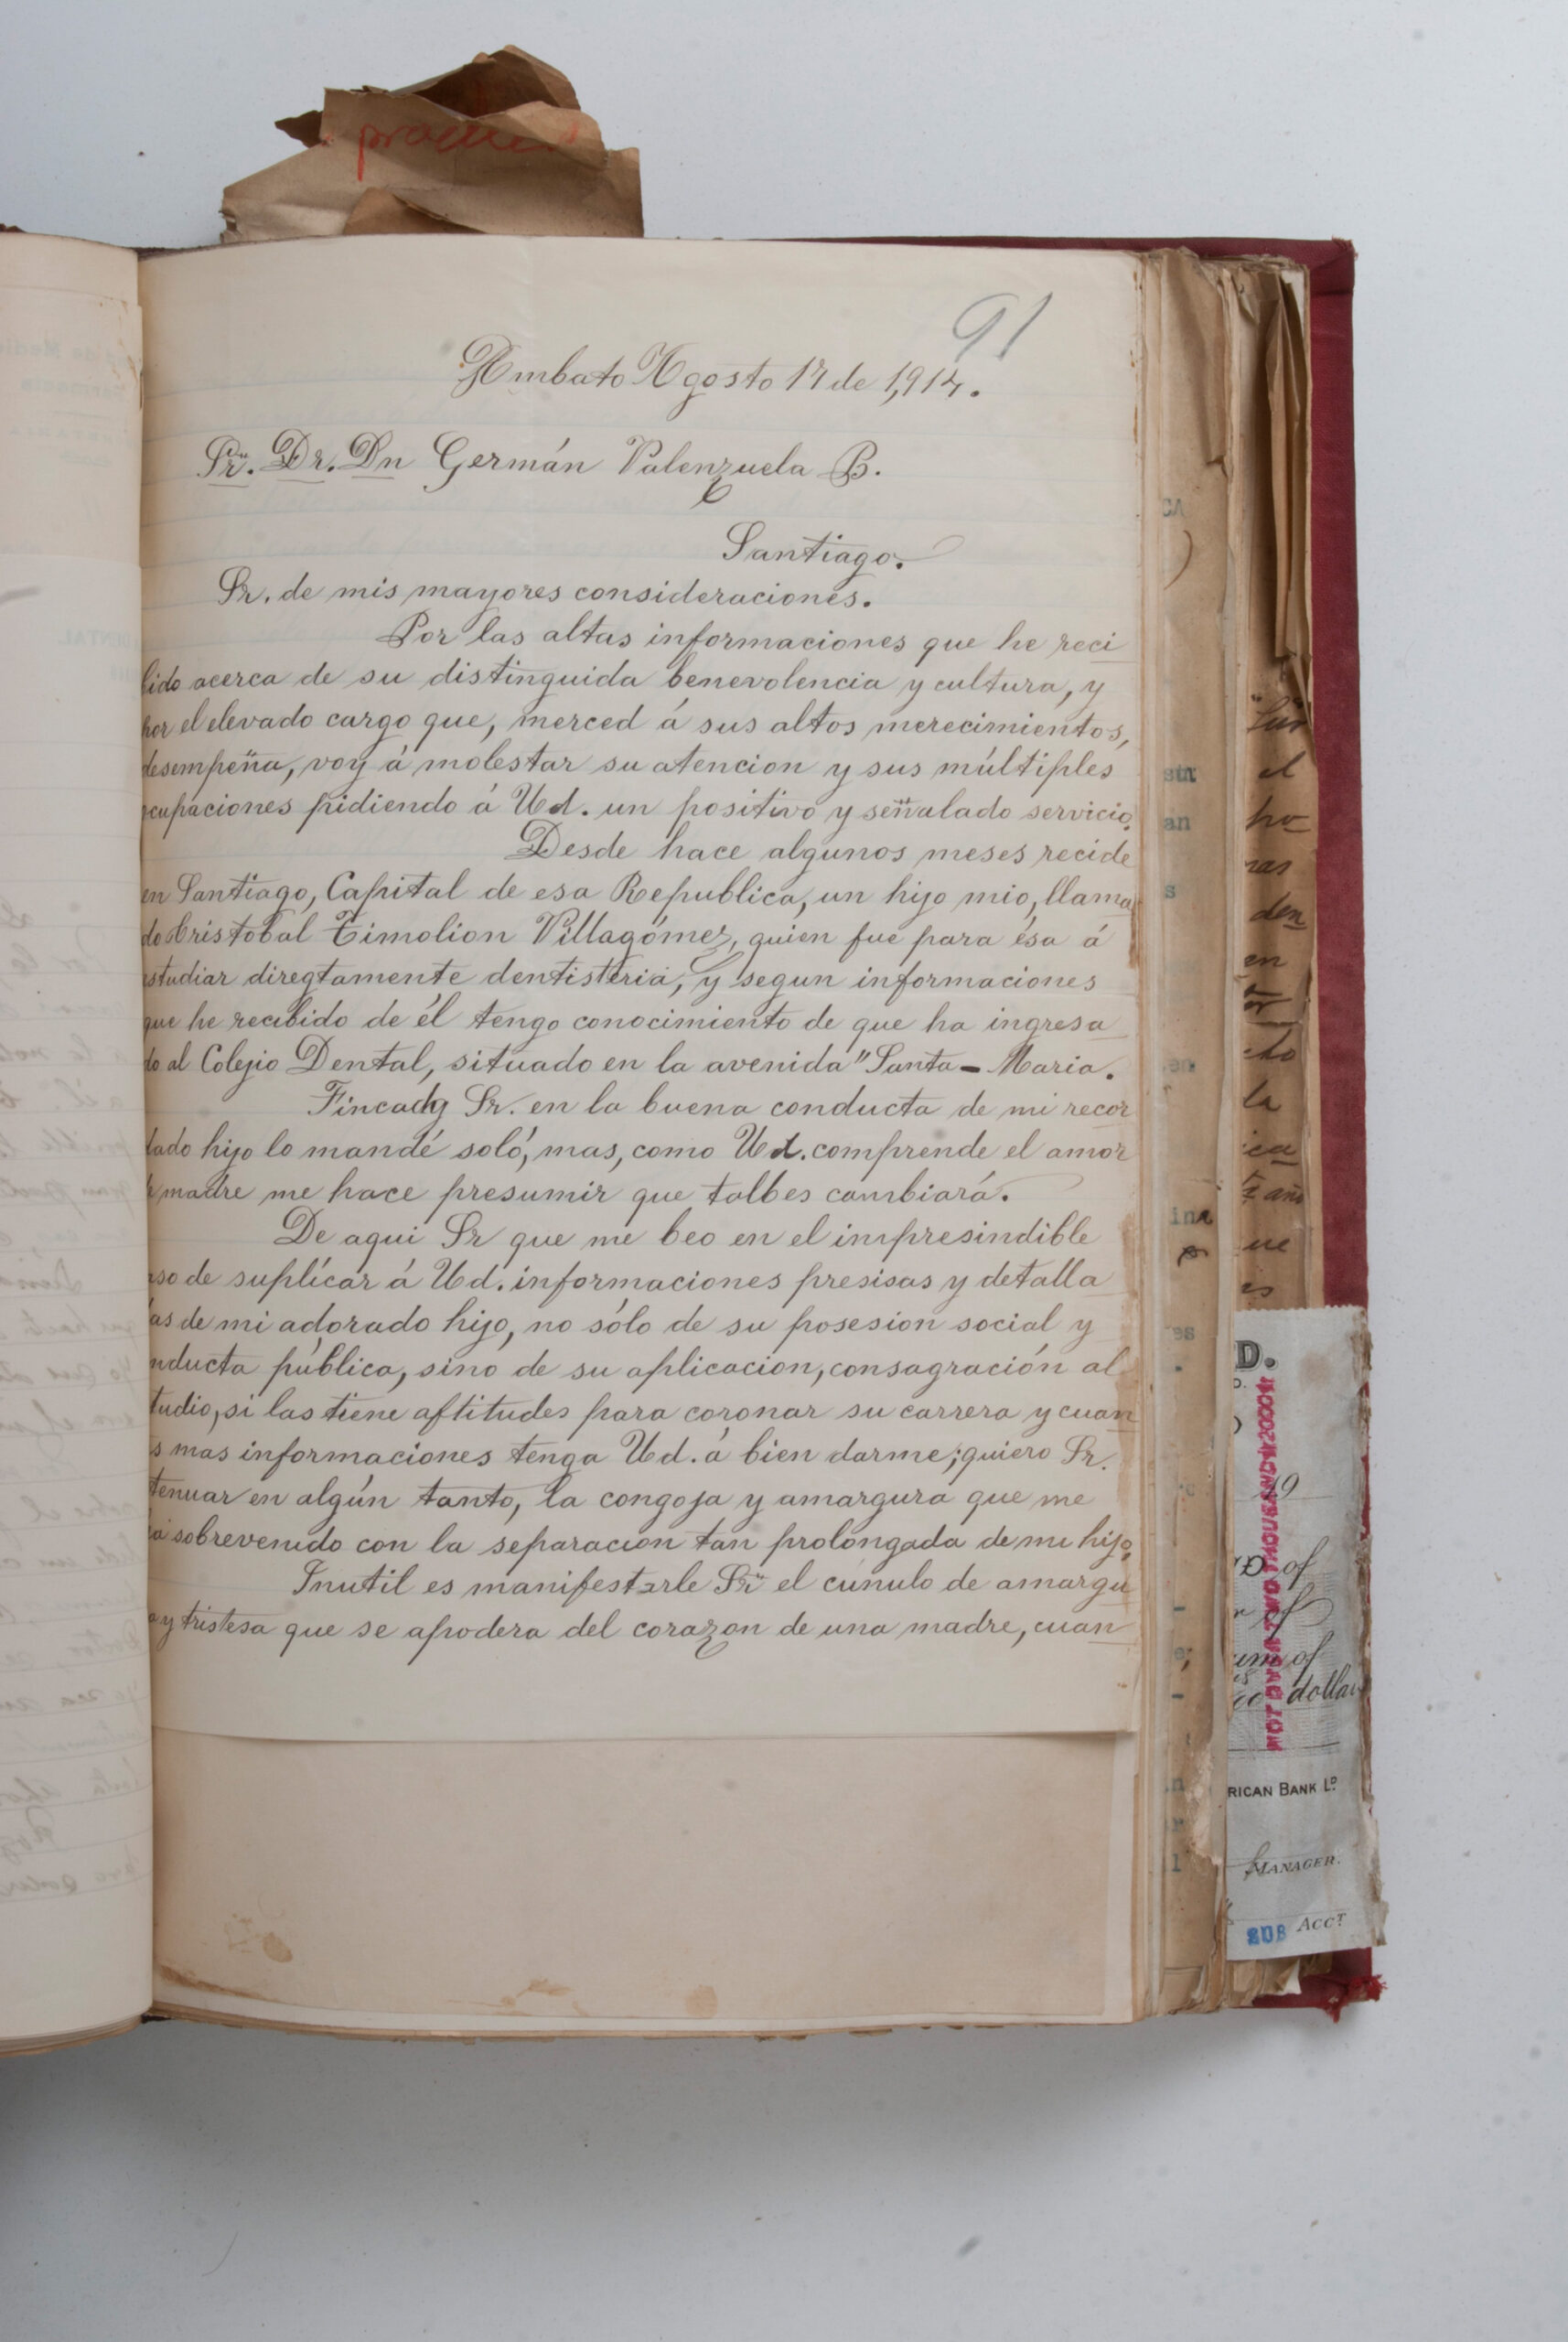 procne
91
Ambato Agosto 17 de 1,914.
Sr. Dr. Dn Germán Valenzuela B.
Santiago.
Sr. de mis mayores consideraciones.
Por las altas informaciones que he reci
bido acerca de su distinguida benevolencia y cultura, y
por el elevado cargo que, merced á sus altos merecimientos,
desempeña, voy á molestar su atencion y sus múltiples
ocupaciones pidiendo á Ud. un positivo y señalado servicio.
Desde hace algunos meses recide
en Santiago, Capital de esa Republica, un hijo mio, llama
do Cristobal Timolion Villagómez, quien fué para ésa á
estudiar diregtamente dentisteria, y segun informaciones
que he recibido de él tengo conocimiento de que ha ingresa
do al Colejio Dental, situado en la avenida "Santa-Maria.
Fincada Sr. en la buena conducta de mi recor
dado hijo lo mandé soló, mas, como Ud. comprende el amor
madre me hace presumir que talbes cambiará.
De aqui Sr que me beo en el impresindible
so de suplícar á Ud. informaciones presisas y detalla
as de mi adorado hijo, no sólo de su posesion social y
nducta pública, sino de su aplicacion, consagración al
tudio, si las tiene aftitudes para coronar su carrera y cuan
s mas informaciones tenga Ud. á bien darme; quiero Sr.
tenuar en algún tanto, la congoja y amargura que me
a sobrevenido con la separacion tan prolongada de mi hijo.
Inutil es manifestarle Sr. el cúnulo de amargu
a y tristesa que se apodera del corazon de una madre, cuan
CA
str
an
s
en
ina
es
el
ho
ras
den
en
cto
la
ica
año
ue
es
D.
19
of
of
um of
dollar
NOT OVER TWO THOUSAND $2000
RICAN BANK LD
MANAGER.
SUB ACCT